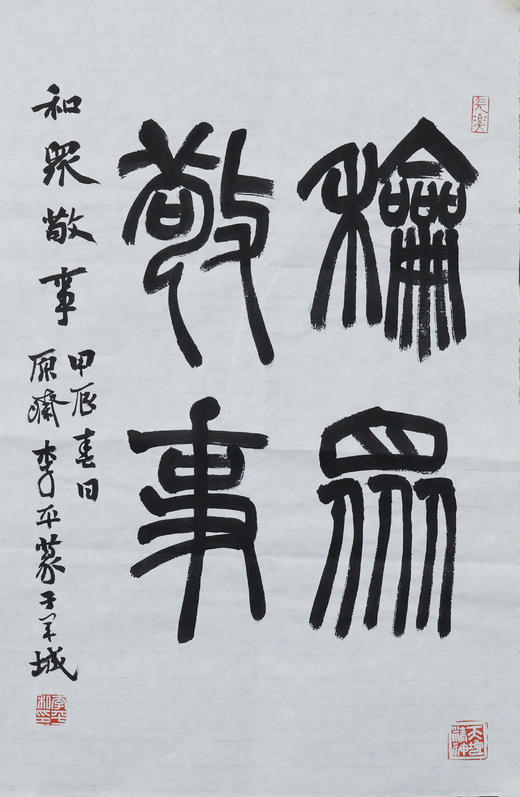 龢眾
敬事
和眾敬事
甲辰春日
李平篆于羊城